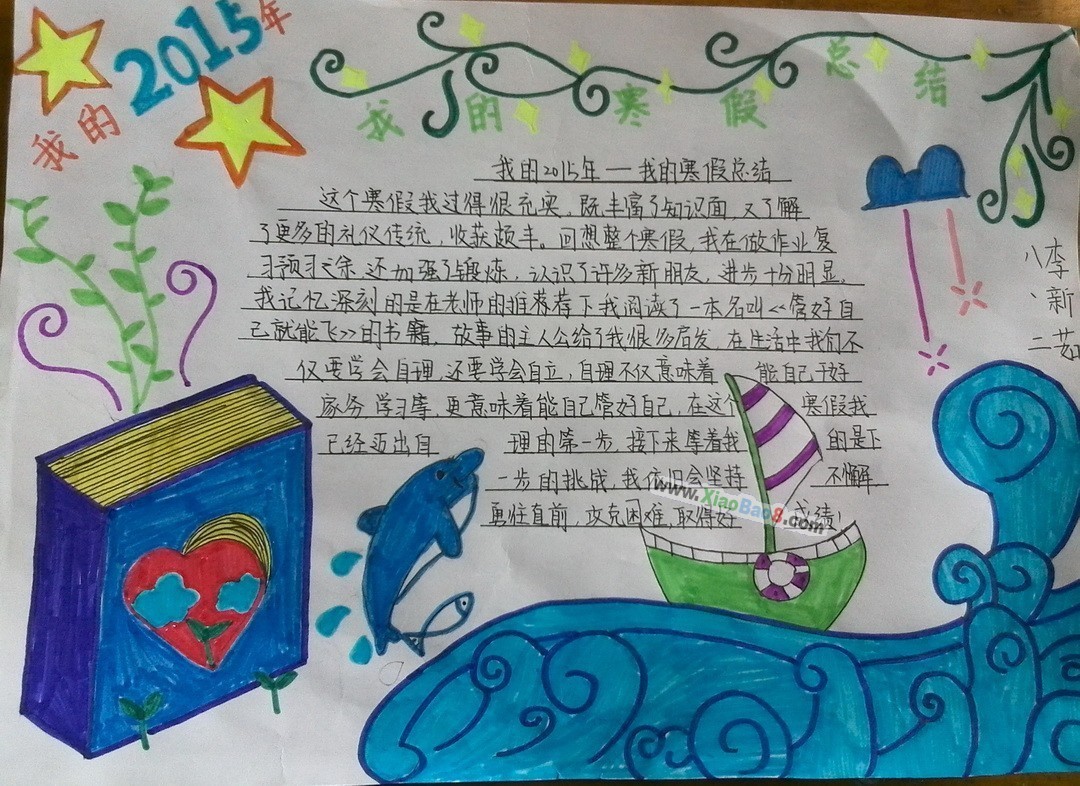 我的2015年
我的寒假总结
我的2015年一我的寒假总结
这个寒假我过得很充实，既丰富了知识面，又了解
了更多的礼仪传统，收获颇丰。回想整个寒假，我在做作业复
习预习之余，还加强了锻炼，认识了许多新朋友，进步十分明显。
我记忆深刻的是在老师的推荐荐下我阅读了一本名叫<<管好自
己就能飞>>的书籍，故事的主人公给了我很多启发，在生活中我们不
仅要学会自理，还要学会自立，自理不仅意味着 能自己干好
家务，学习等，更意味着能自己管好自己，在这个 寒假我
已经迈出自 理的第一步，接下来等着我 的是下
一步的挑战，我依旧会坚持 不懈
勇往直前，攻克困难，取得好 成绩！
八、二
李新茹
www.XiaoBao8.com